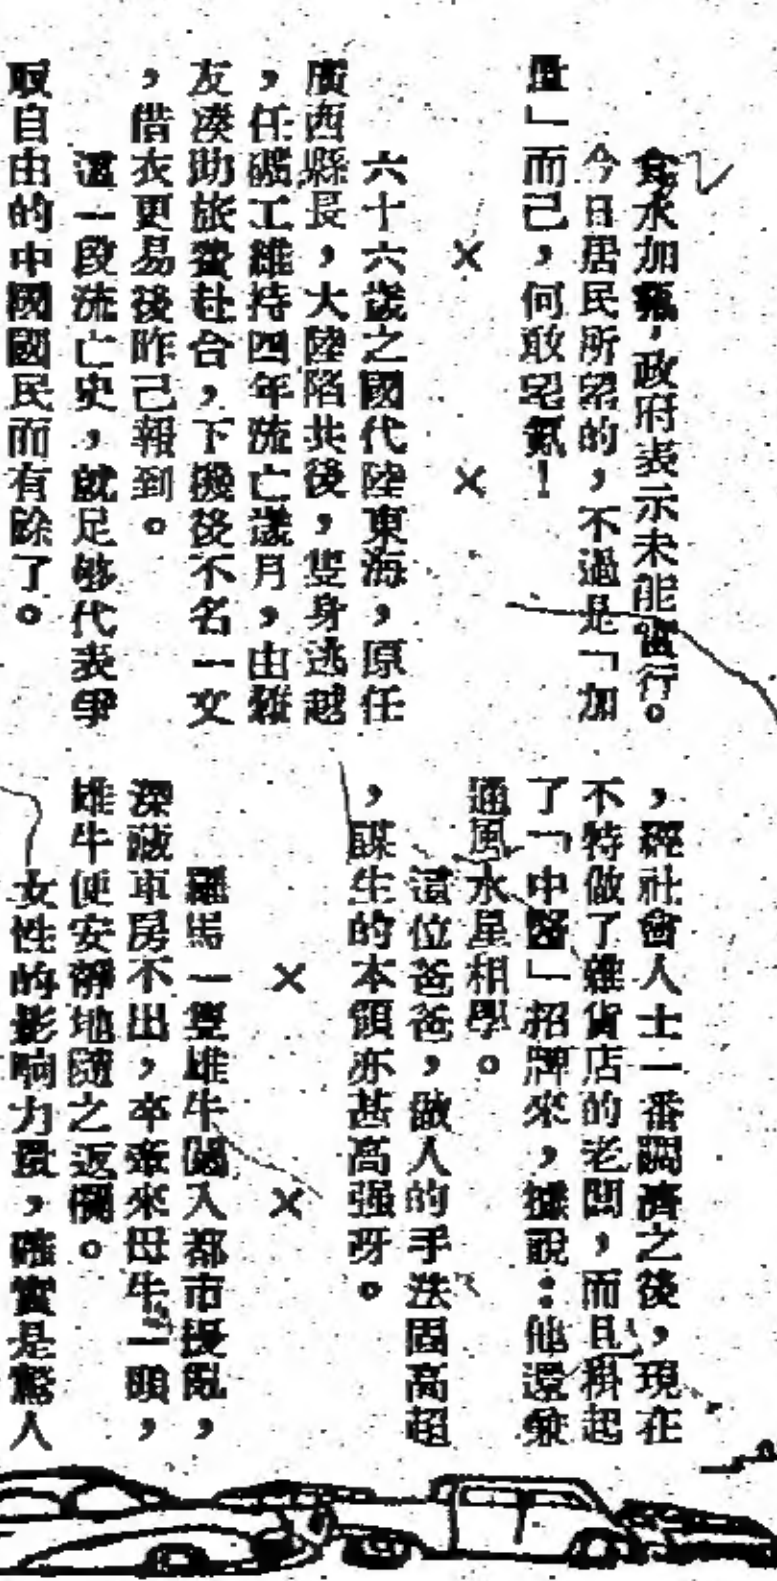 食水加氟，政府表示未能實行。
今日居民所望的，不過是「加
量」而己，何敢望氟！
× ×
六十六歲之國代陸東海，原任
廣西縣長，大陸陷共後，隻身逃越
，任礦工維持四年流亡歲月，由難
友湊助旅費赴台，下機後不名一文
，借衣更易後昨己報到。
這一段流亡史，就足够代表爭
取自由的中國國民而有餘了。
，經社會人士一番調濟之後，現在
不特做了雜貨店的老闆，而且掛起
了「中醫」招牌來，據說：他還兼
通風水星相學。
這位爸爸，做人的手法固高超
，謀生的本領亦甚高强呀。
× ×
羅馬一隻雄牛闖入都市擾亂，
深藏車房不出，卒牽來母牛一頭，
雄牛便安靜地隨之返欄。
女性的影响力量，確實是驚人